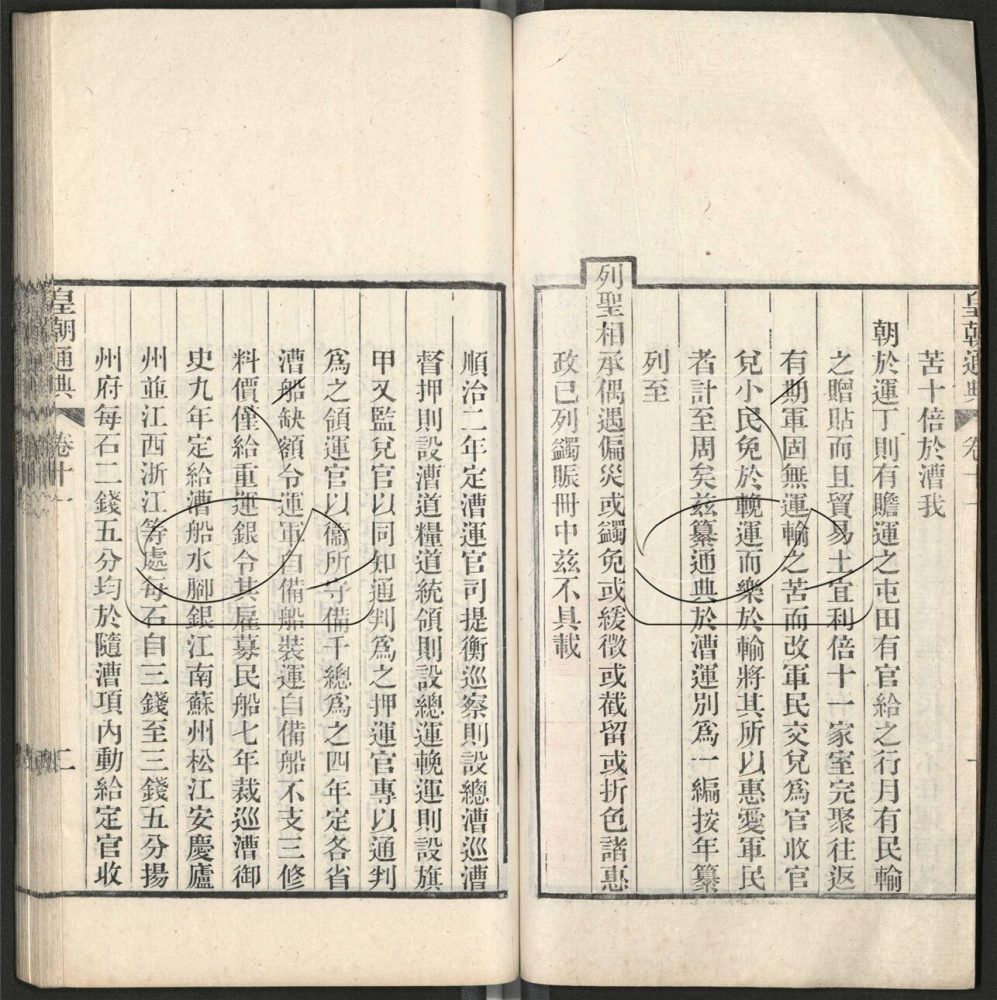 皇朝通典
卷十一
苦十倍於漕我
朝於運丁則有贍運之屯田有官給之行月有民輸
之贈貼而且貿易土宜利倍十一家室完聚往返
有期軍固無運輸之苦而改軍民交兌爲官收官
兌小民免於輓運而樂於輸將其所以惠愛軍民
者計至周矣茲纂通典於漕運別爲一編按年纂
列至
列聖相承偶遇偏災或蠲免或緩徵或截留或折色諸惠
政已列蠲賑冊中茲不具載
順治二年定漕運官司提衡巡察則設總漕巡漕
督押則設漕道糧道統領則設總運輓運則設旗
甲又監兌官以同知通判爲之押運官專以通判
爲之領運官以衞所守備千總爲之四年定各省
漕船缺額令運軍自備船裝運自備船不支三修
料價僅給重運銀令其雇募民船七年裁巡漕御
史九年定給漕船水腳銀江南蘇州松江安慶廬
州並江西浙江等處每石自三錢至三錢五分揚
州府每石二錢五分均於隨漕項內動給定官收
皇朝通典
卷十一
二